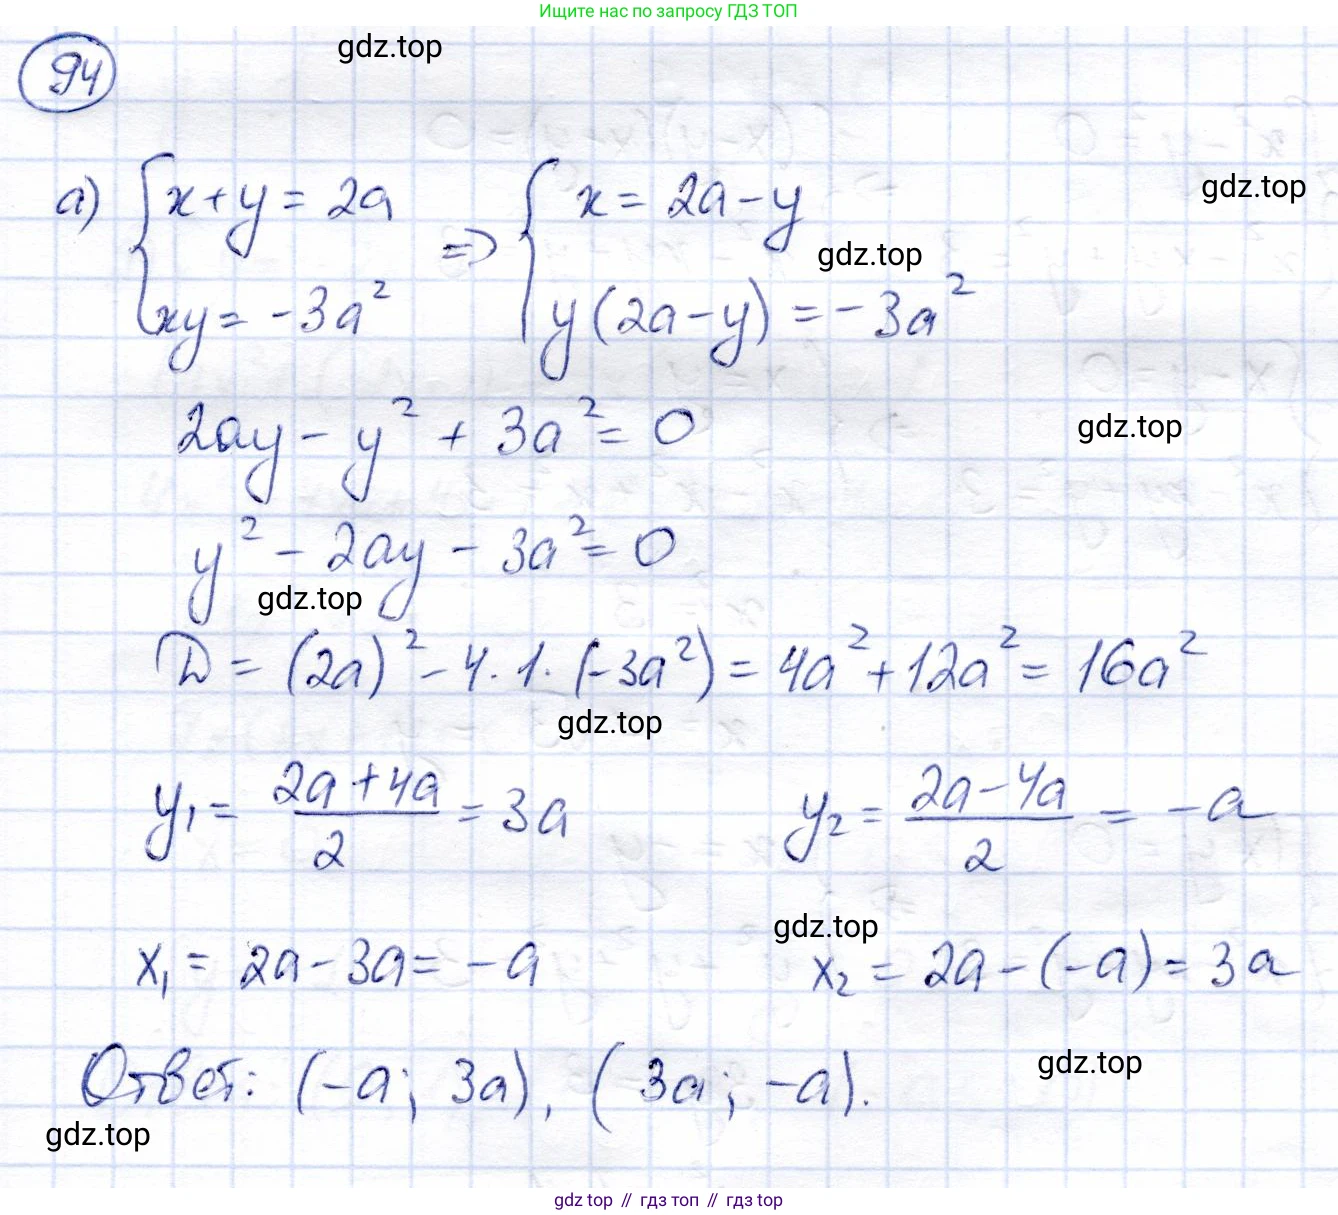 Ищите нас по запросу ГДЗ ТОП
94
gdz.top
а) { x + y = 2a => { x = 2a - y
gdz.top
gdz.top
xy = -3a² y(2a - y) = -3a²
2ay - y² + 3a² = 0
gdz.top
y² - 2ay - 3a² = 0
gdz.top
D = (2a)² - 4 · 1 · (-3a²) = 4a² + 12a² = 16a²
gdz.top
y₁ = (2a + 4a)/2 = 3a y₂ = (2a - 4a)/2 = -a
gdz.top
x₁ = 2a - 3a = -a x₂ = 2a - (-a) = 3a
gdz.top
Ответ: (-a; 3a), (3a; -a).
gdz.top
gdz top // гдз топ // гдз top